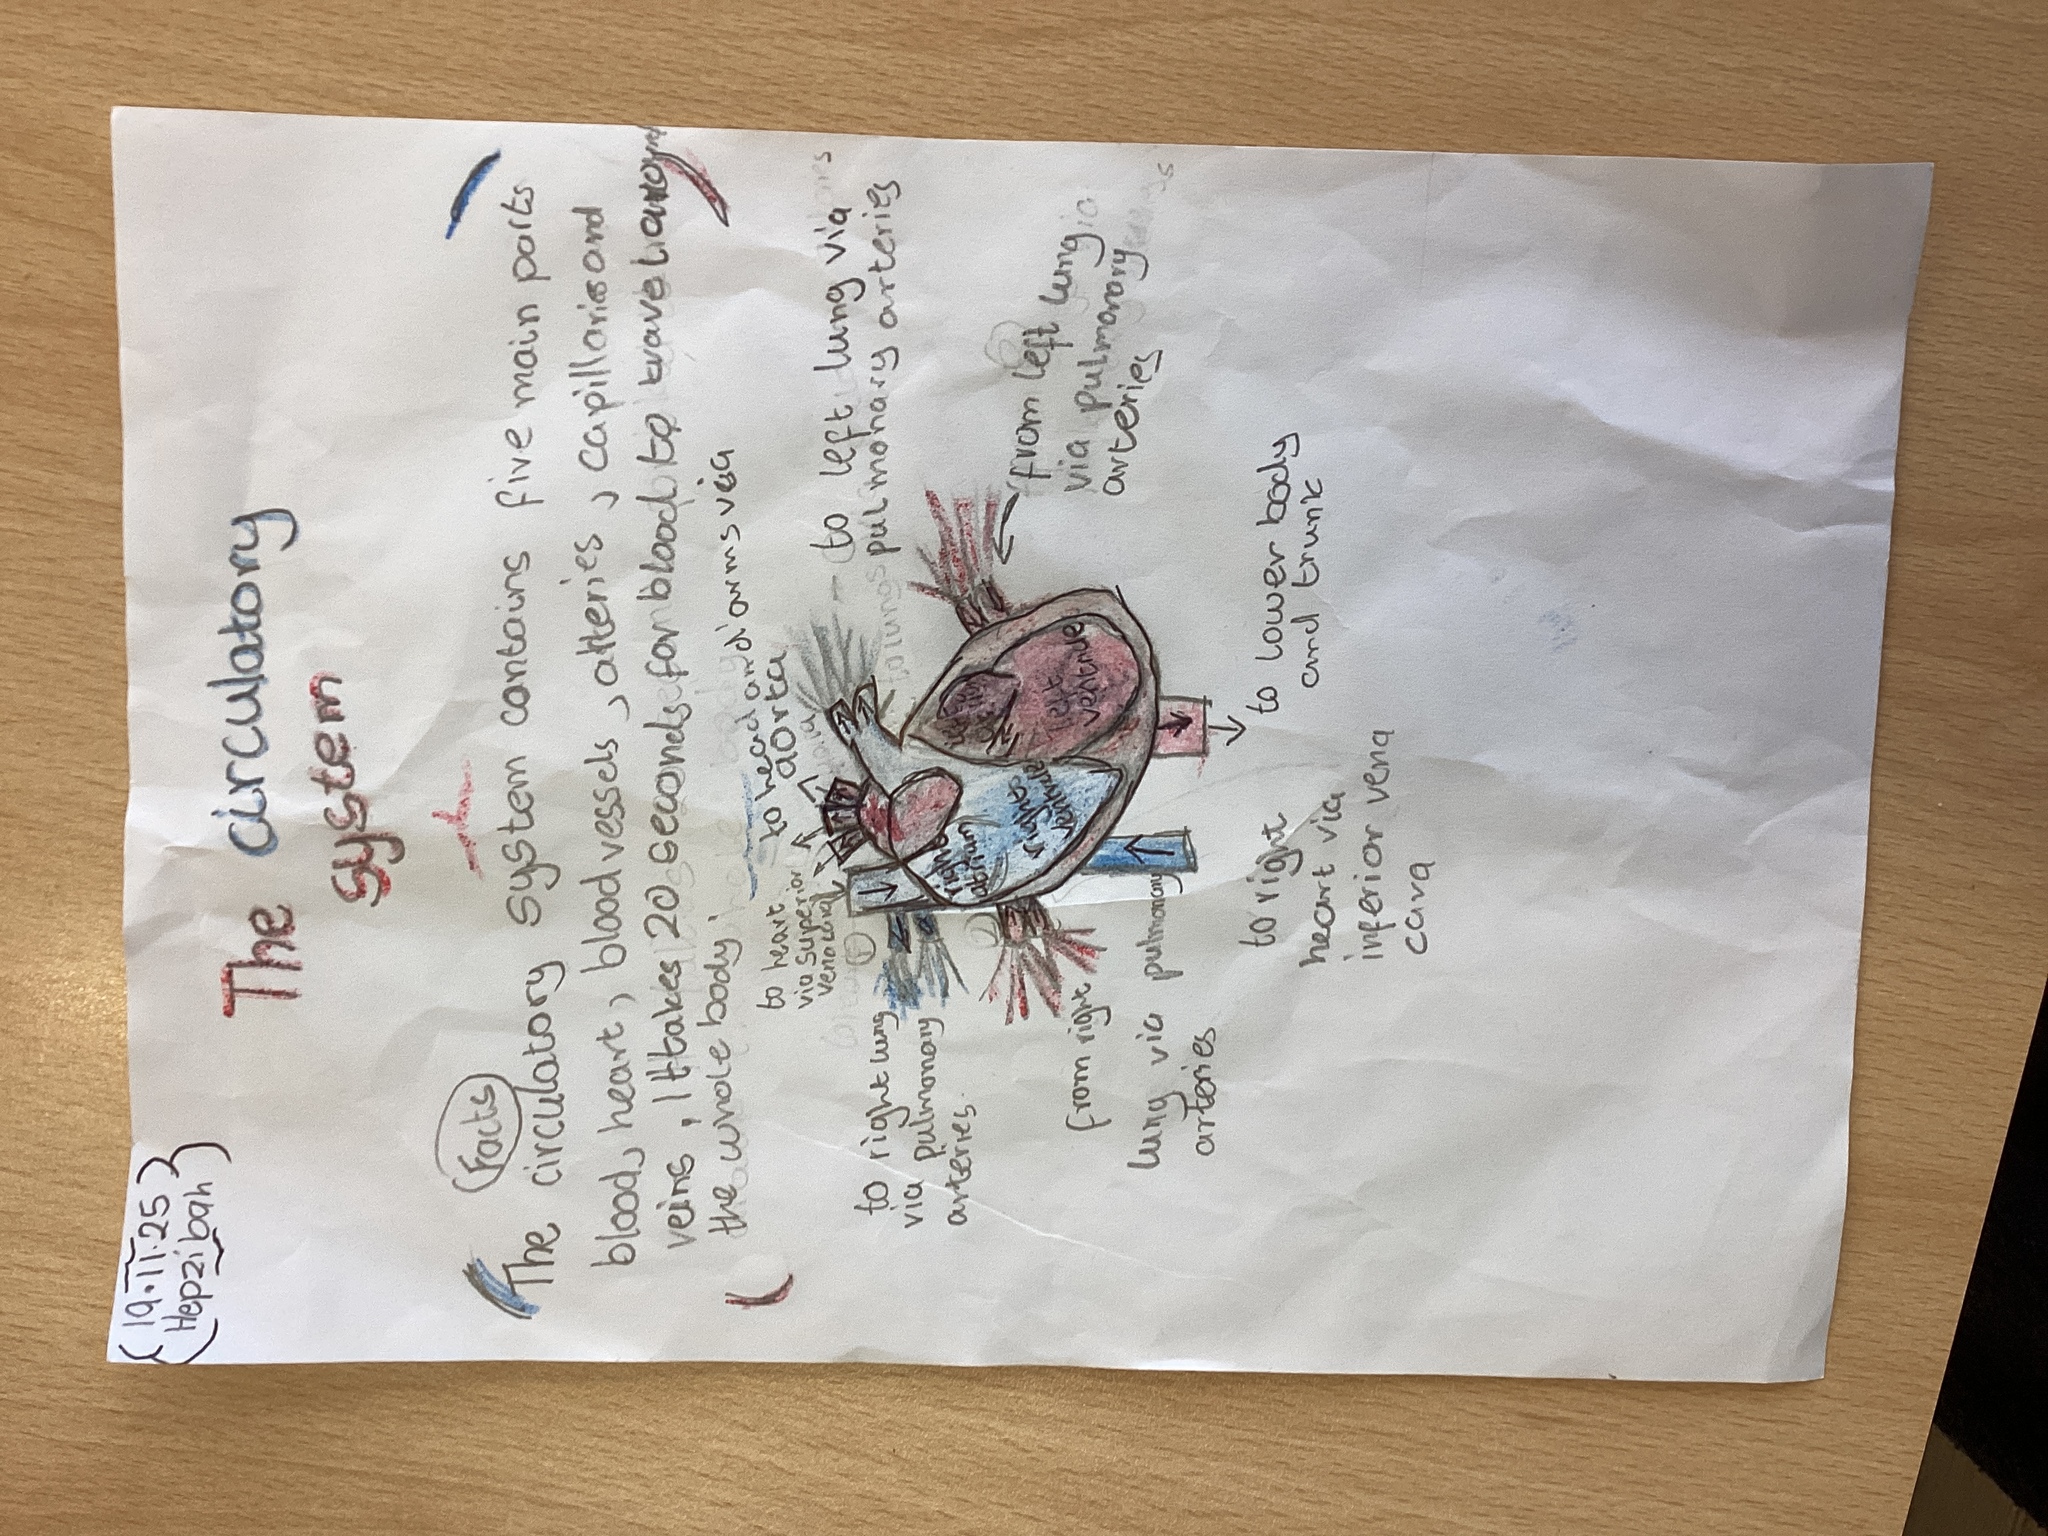 19.11.25
Hepzibah
The circulatory
system
Facts
The circulatory system contains five main parts
blood, heart, blood vessels, atteries, capillaries and
veins, It takes 20 seconds for blood to travel
the whole body.
to head and arms via
aorta
to heart
via superior
vena cava
to left lung via
pulmonary arteries
to right lung
via pulmonary
arteries.
from left lung
via pulmonary
arteries
right
atrium
right
ventricule
left
ventricule
from right
lung via pulmonary
arteries
to lower body
and trunk
to right
heart via
inferior vena
cava